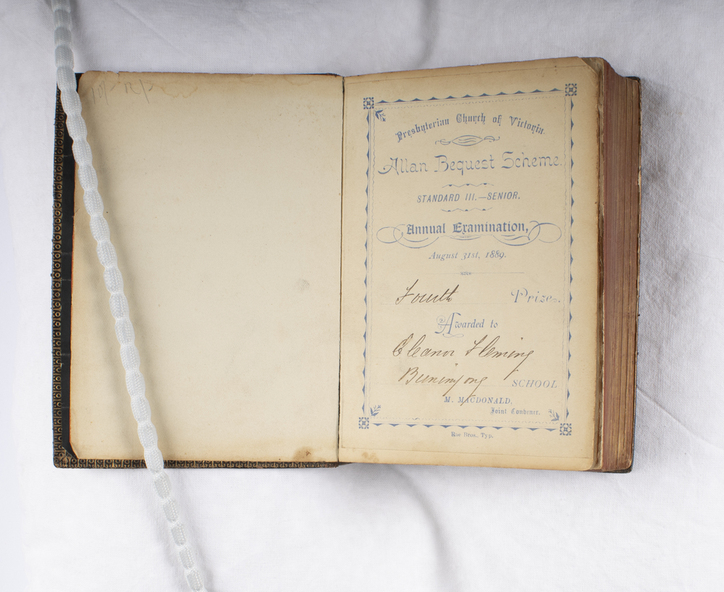 Presbyterian Church of Victoria.
Allan Bequest Scheme.
STANDARD III.—SENIOR.
Annual Examination,
August 31st, 1889.
Fourth Prize.
Awarded to
Eleanor Fleming
Buninyong SCHOOL.
M. MACDONALD,
Joint Convener.
Typ.